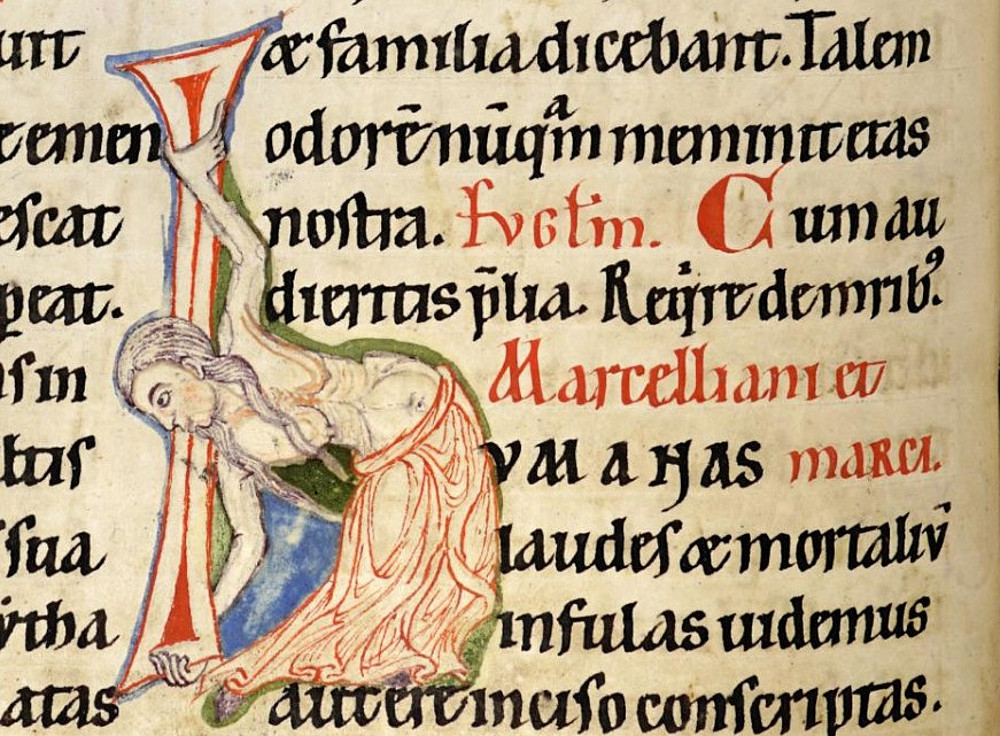 unt
e emen
escat
peat.
sin
ltis
sua
ẏtha
atas
æ familia dicebant. Talem
odorē nūqᵃm meminit etas
nostra. C um au
dieritis p̄lia. Reqͥre
Marcelliani et
HVMANAS marci.
laudes æ mortaliū
infulas uidemus
aut ere inciso conscriptas.